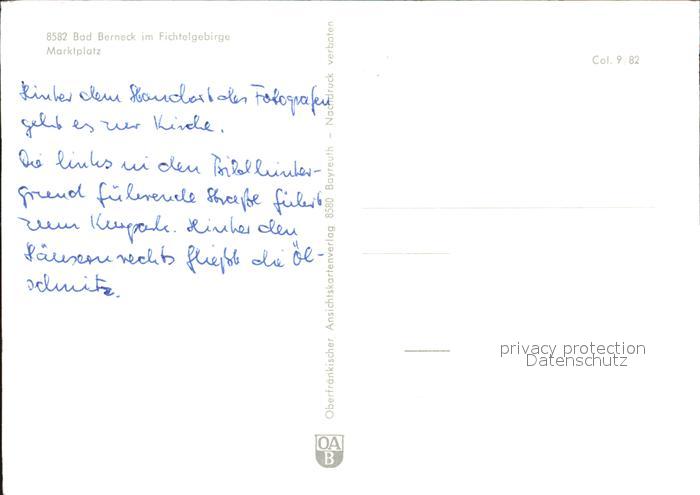 8582 Bad Berneck im Fichtelgebirge
Marktplatz
Col. 9/82
Hinter dem Standort des Fotografen
geht es zur Kirche.
Die links in den Bildhinter-
grund führende Straße führt
zum Kurpark. Hinter den
Häusern rechts fließt die Öl-
schnitz.
Oberfränkischer Ansichtskartenverlag 8580 Bayreuth – Nachdruck verboten
privacy protection
Datenschutz
OA
B